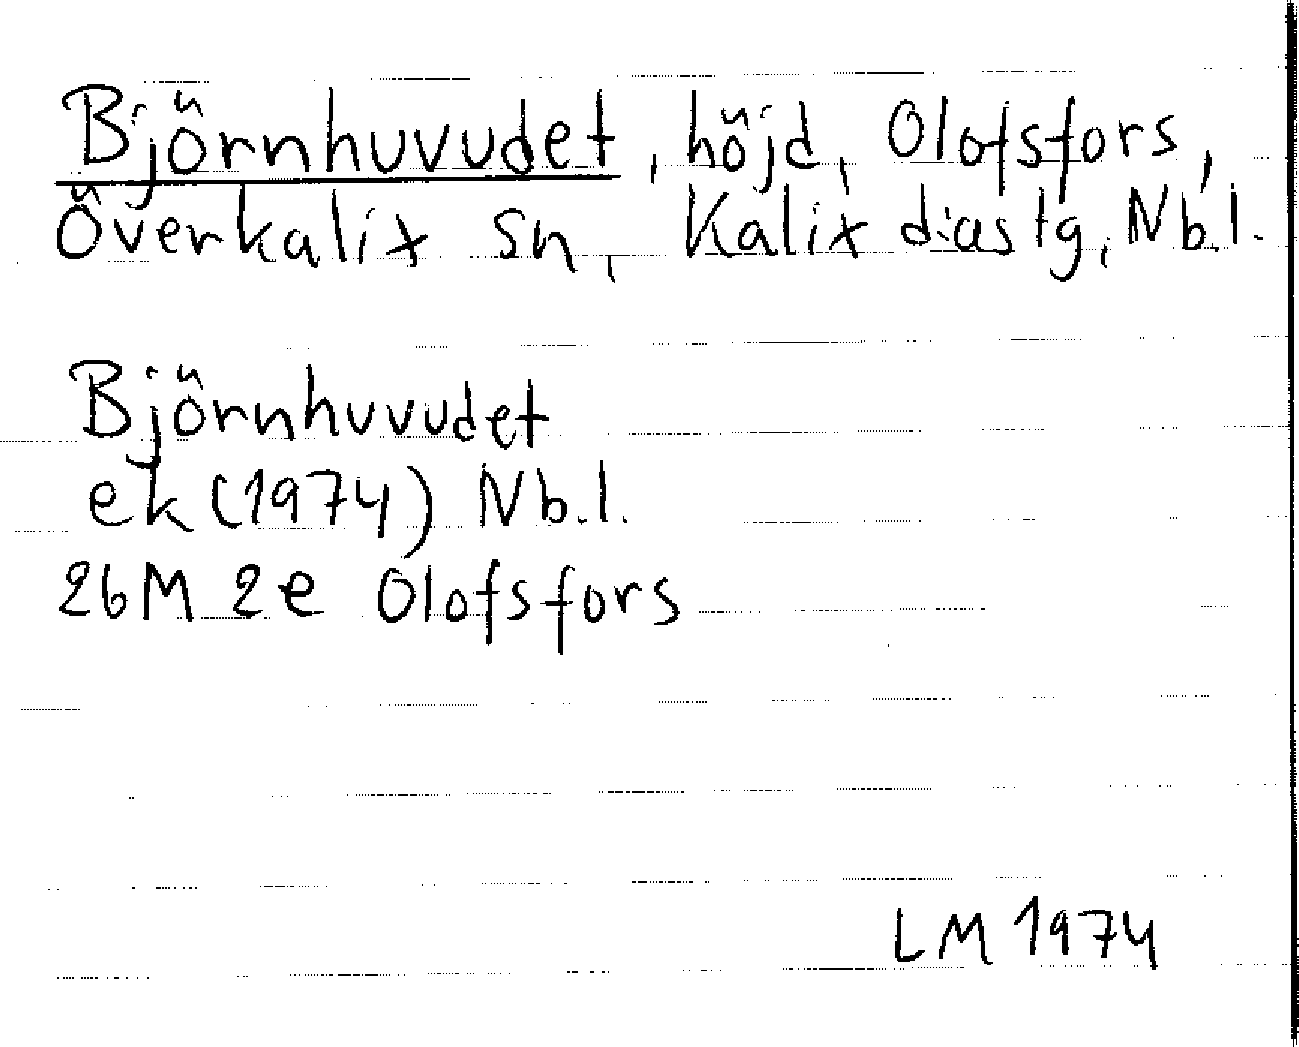 Björnhuvudet, höjd, Olofsfors,
Överkalix sn, Kalix domsg, Nb.l.
Björnhuvudet
ek (1974) Nb.l.
26M 2e Olofsfors
LM 1974